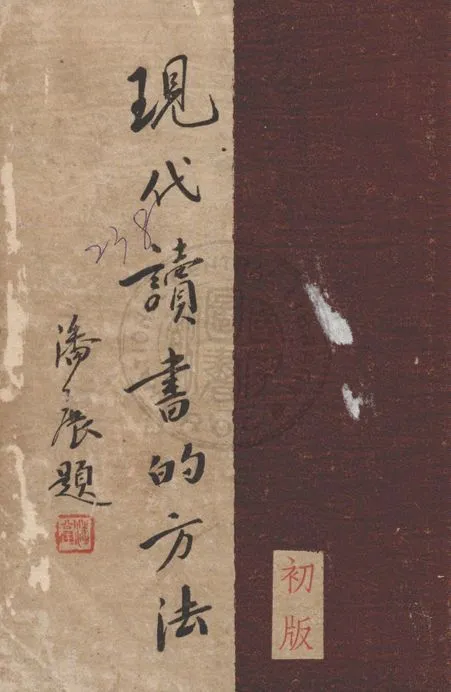 現代讀書的方法
潘公展題
初版
238